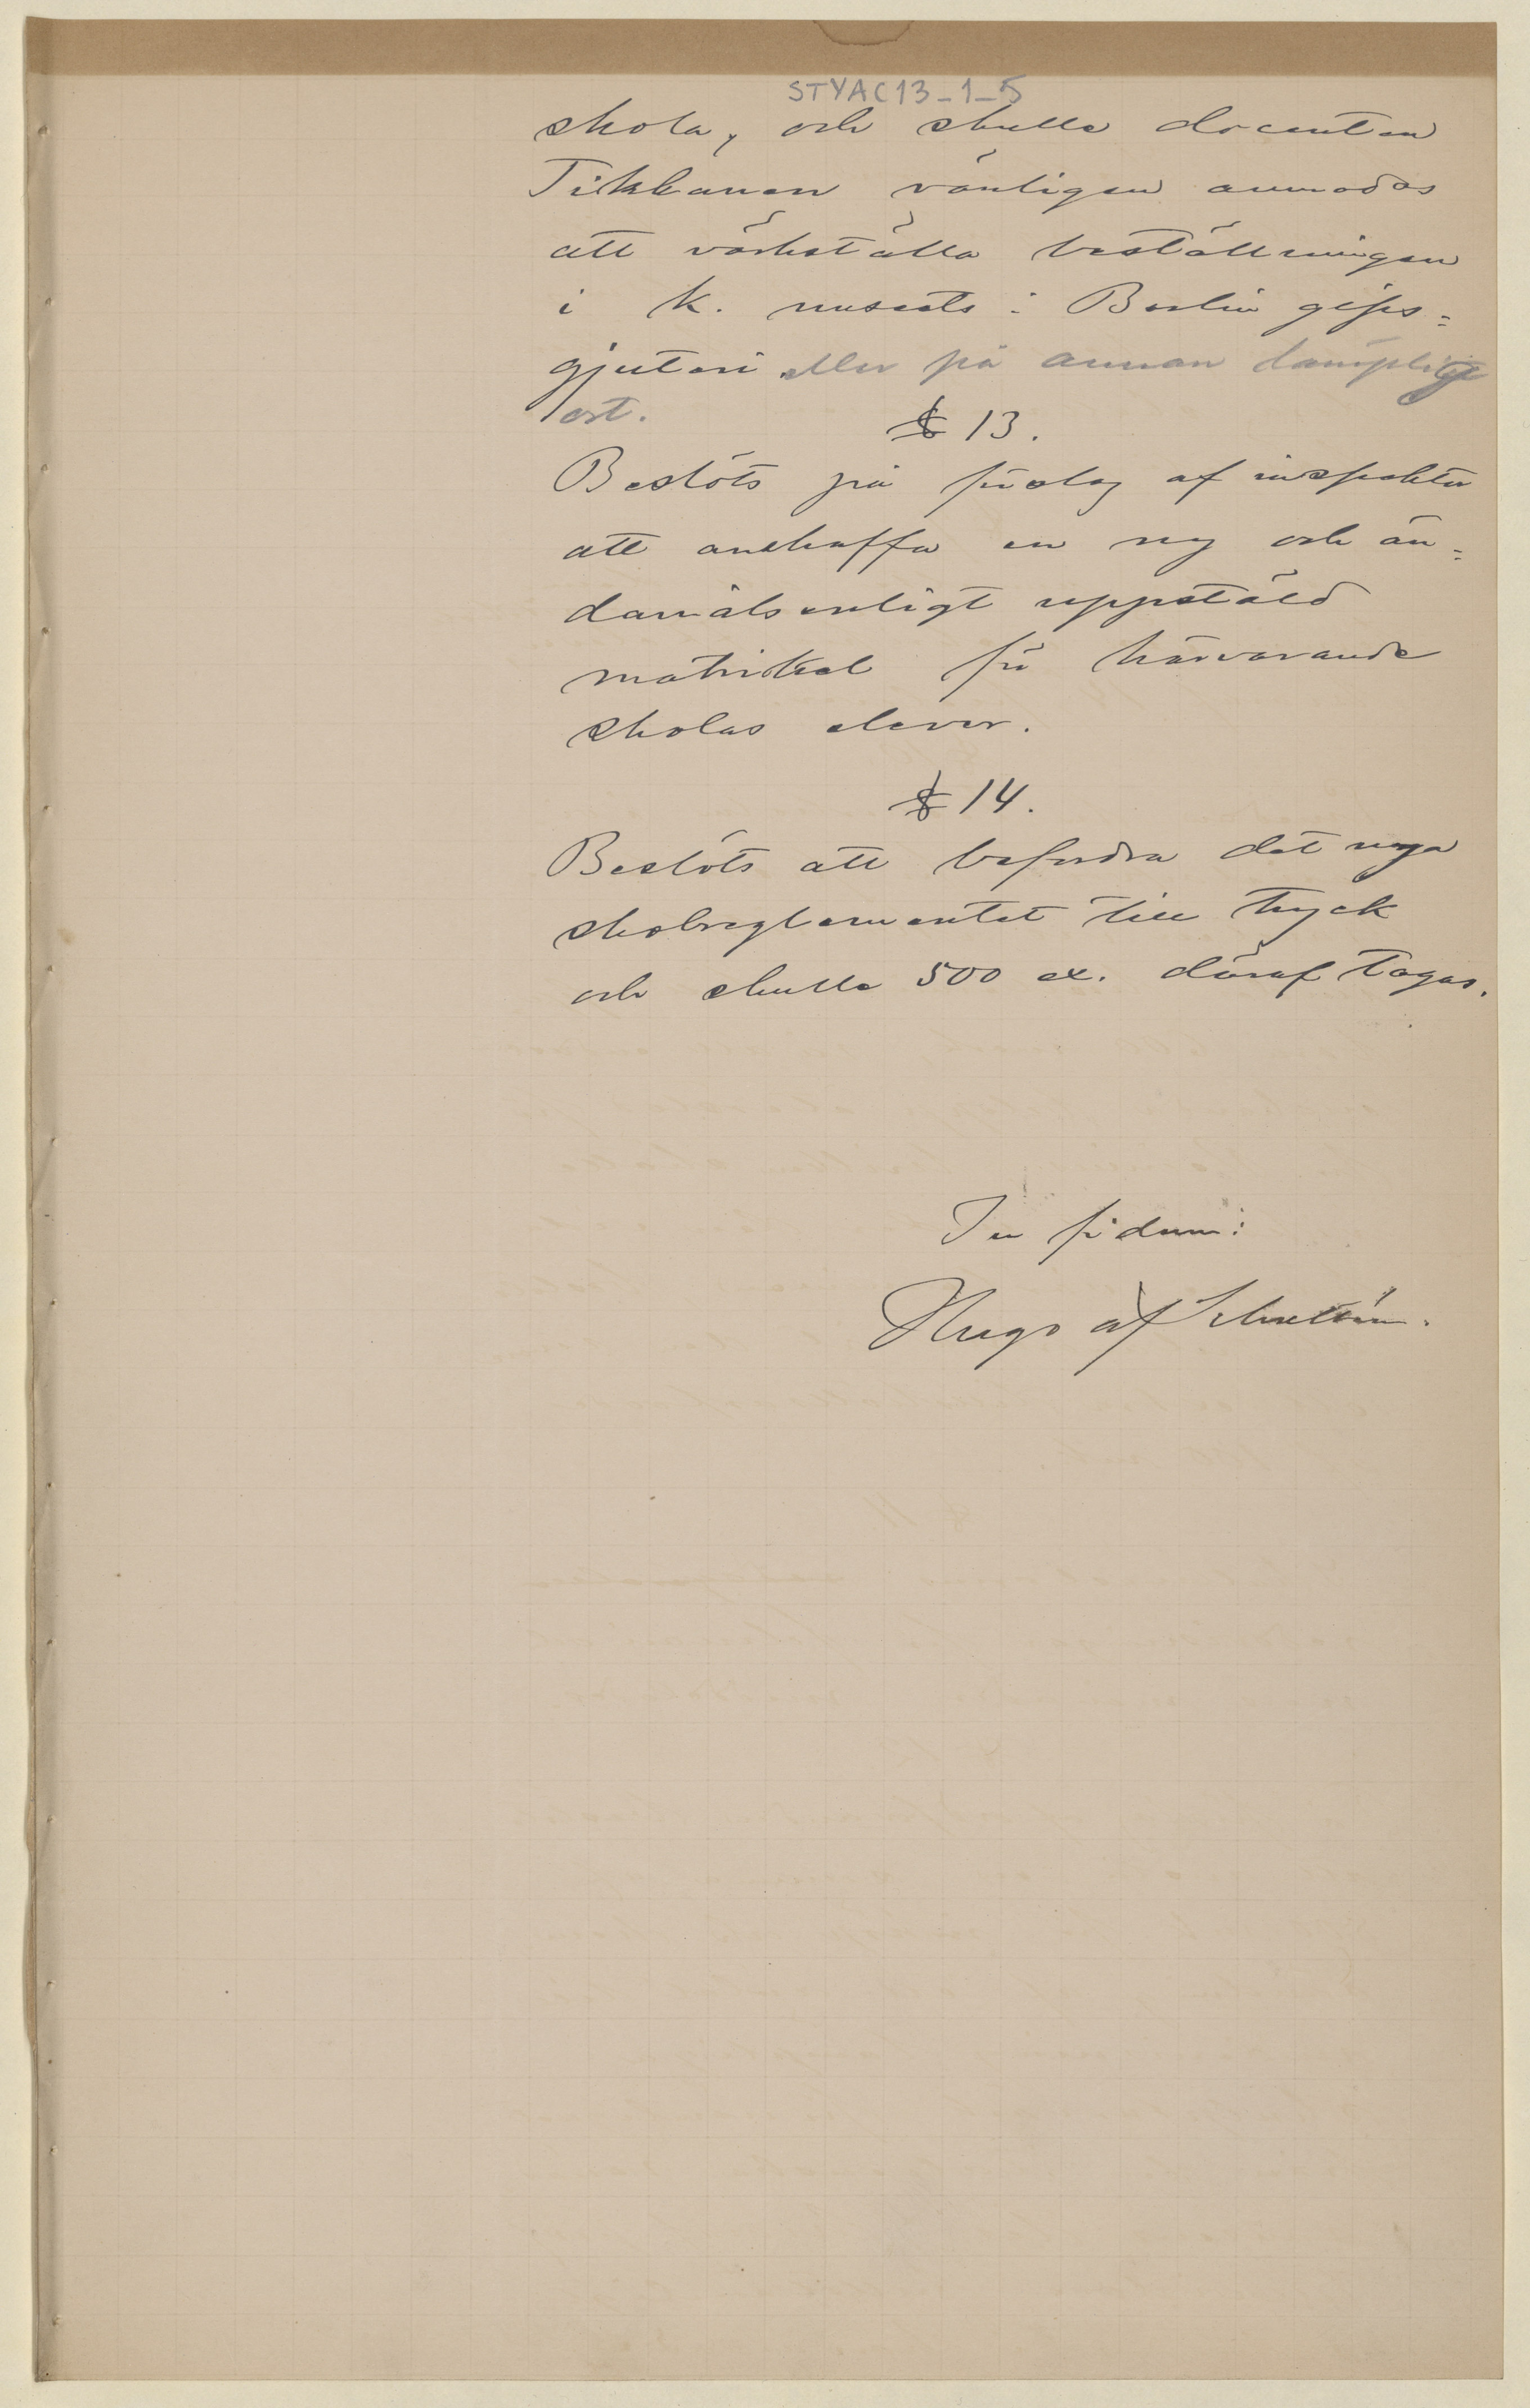 STYAC13_1_5
skola, och skulle docenten
Tikkanen vänligen anmodas
att värkställa beställningen
i K. museets i Berlin gips=
gjuteri eller på annan lämplig
ort.
§ 13.
Beslöts på förslag af inspektor
att anskaffa en ny och än=
damålsenligt uppstäld
matrikel för härvarande
skolas elever.
§ 14.
Beslöts att befordra det nya
skolreglementet till tryck
och skulle 500 ex. däraf tagas.
In fidem:
Hugo af Schultén.